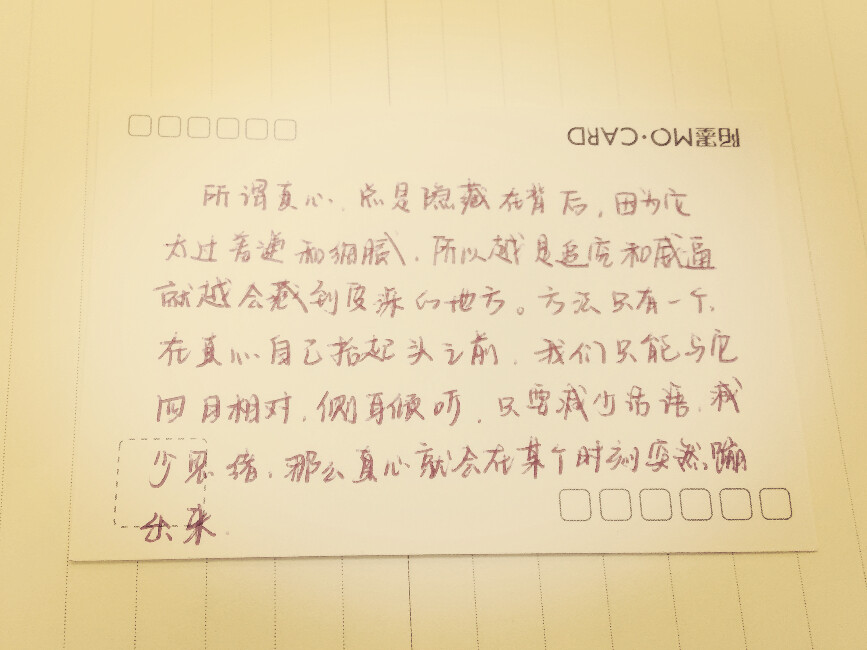 陌墨MO·CARD
所谓真心，总是隐藏在背后，因为它
太过普通和细腻，所以越是追究和威逼
就越会藏到更深的地方。方法只有一个，
在真心自己抬起头之前，我们只能与它
四目相对，侧身倾听，只要减少话语，减
少思绪，那么真心就会在某个时刻突然蹦
出来.